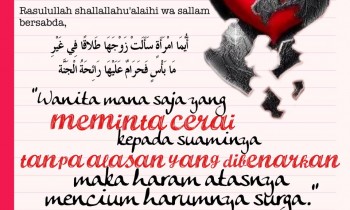 Rasulullah shallallahu'alaihi wa sallam
bersabda,
أَيُّمَا امْرَأَةٍ سَأَلَتْ زَوْجَهَا طَلَاقًا فِي غَيْرِ
مَا بَأْسٍ فَحَرَامٌ عَلَيْهَا رَائِحَةُ الْجَنَّةِ
"Wanita mana saja yang
meminta cerai
kepada suaminya
tanpa alasan yang dibenarkan
maka haram atasnya
mencium harumnya surga."